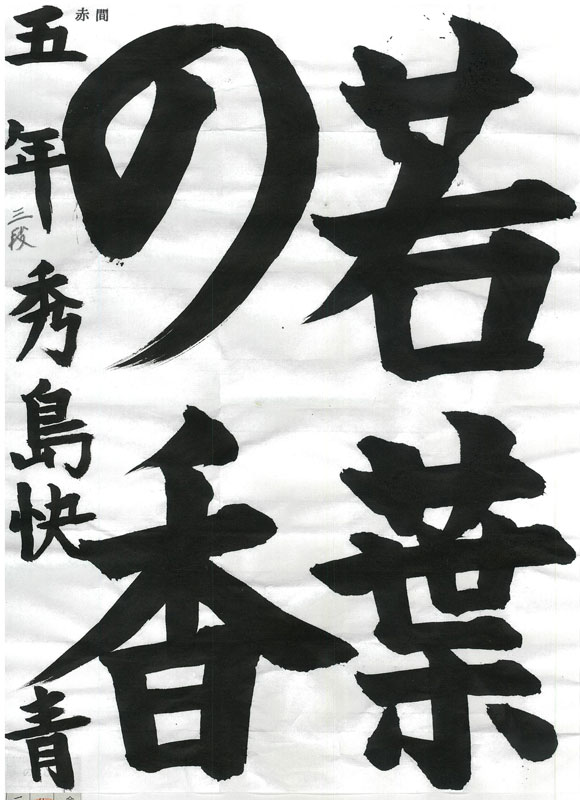 若葉
の香
赤間
五年 秀島快青
三段